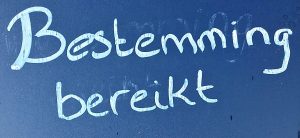 Bestemming
bereikt